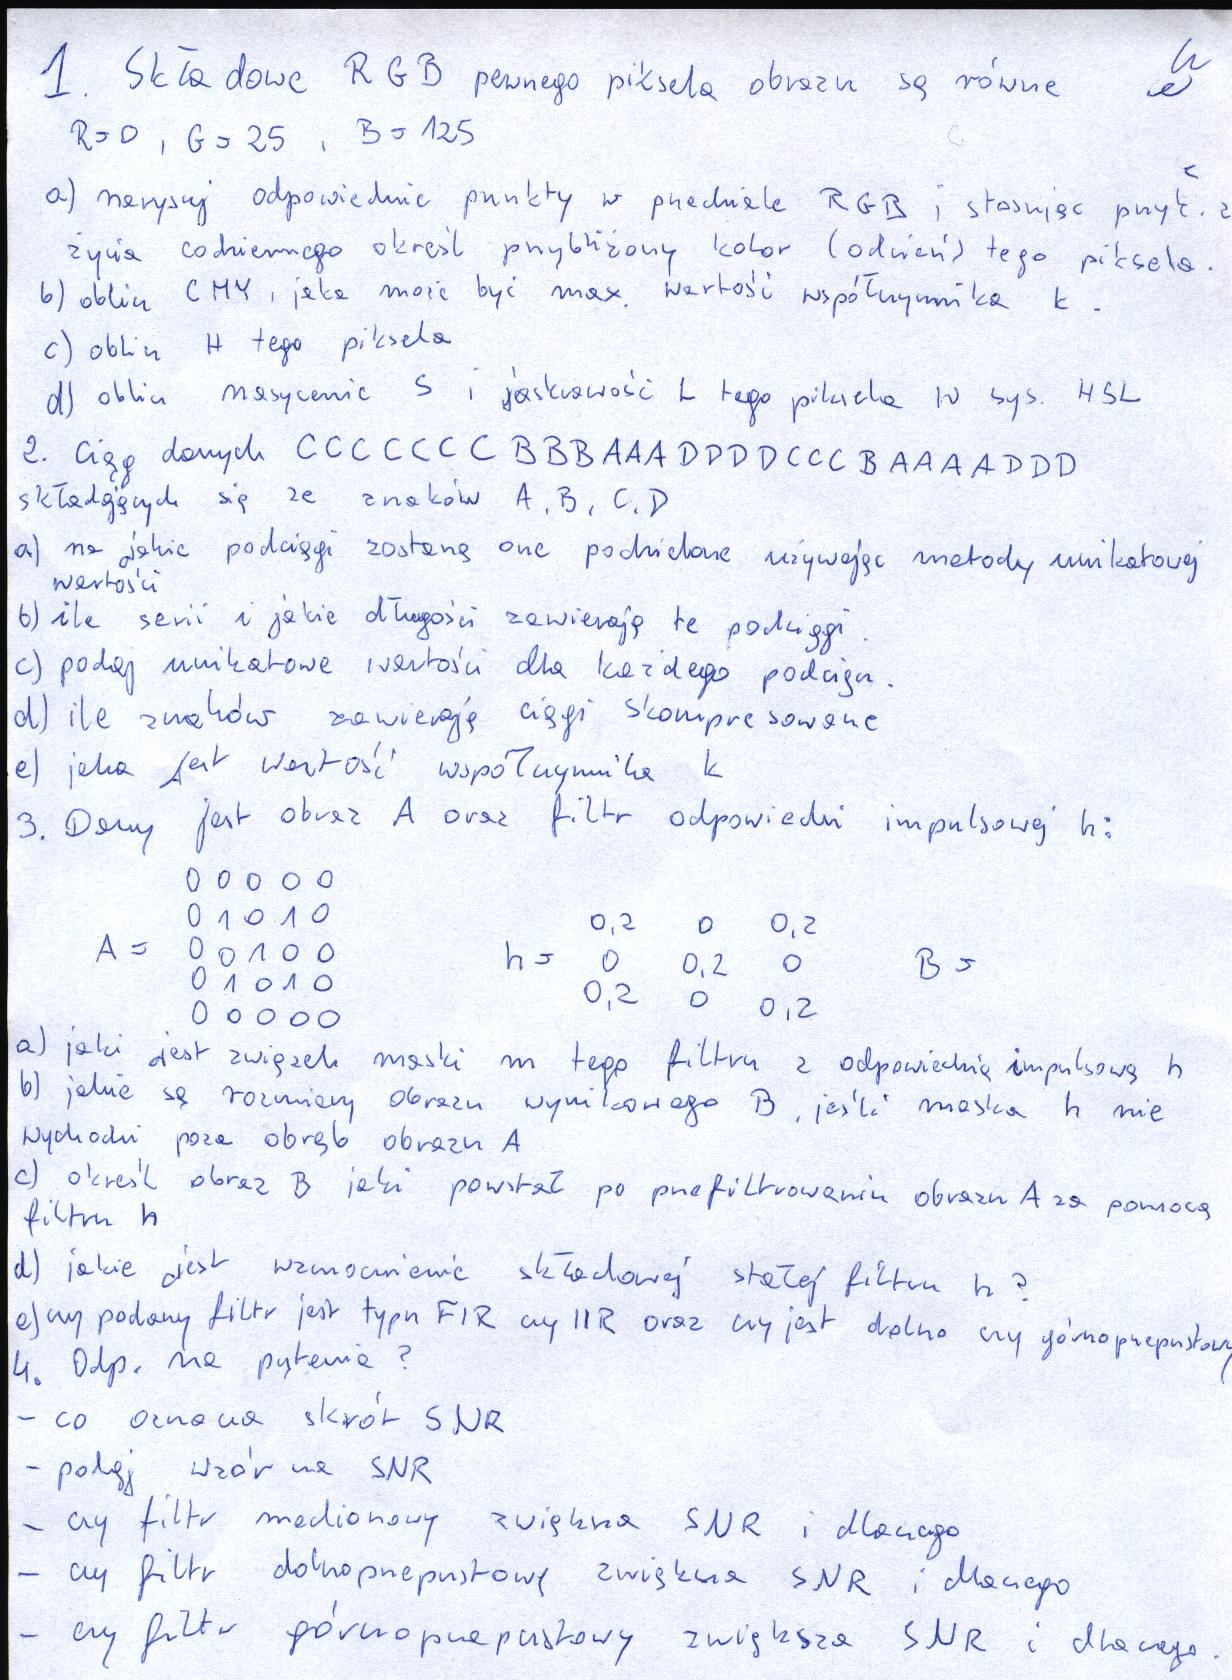 1. Składowe RGB pewnego piksela obrazu są równe
R=0, G=25, B=125
a) narysuj odpowiednie punkty w przedziale RGB i stosując przyk. z
życia codziennego określ przybliżony kolor (odcień) tego piksela.
b) oblicz CMY, jaka może być max. wartość współczynnika k.
c) oblicz H tego piksela
d) oblicz nasycenie S i jaskrawość L tego piksela w sys. HSL
2. Ciąg danych CCCCCCCBBBAAADDDDCCCBAAAADDD
składających się ze znaków A, B, C, D
a) na jakie podciągi zostaną one podzielone używając metody unikatowej
wartości
b) ile serii i jakie długości zawierają te podciągi.
c) podaj unikatowe wartości dla każdego podciągu.
d) ile znaków zawierają ciągi skompresowane
e) jaka jest wartość współczynnika k
3. Dany jest obraz A oraz filtr odpowiedzi impulsowej h:
0 0 0 0 0
0 1 0 1 0 0,2 0 0,2
A = 0 0 1 0 0 h = 0 0,2 0 B =
0 1 0 1 0 0,2 0 0,2
0 0 0 0 0
a) jaki jest związek maski m tego filtru z odpowiedzią impulsową h
b) jakie są rozmiary obrazu wynikowego B, jeśli maska h nie
wychodzi poza obrąb obrazu A
c) określ obraz B jaki powstał po przefiltrowaniu obrazu A za pomocą
filtru h
d) jakie jest wzmocnienie składowej stałej filtru h?
e) czy podany filtr jest typu FIR czy IIR oraz czy jest dolno czy górnoprzepustowy
4. Odp. na pytania?
- co oznacza skrót SNR
- podaj wzór na SNR
- czy filtr medianowy zwiększa SNR i dlaczego
- czy filtr dolnoprzepustowy zwiększa SNR i dlaczego
- czy filtr górnoprzepustowy zwiększa SNR i dlaczego.